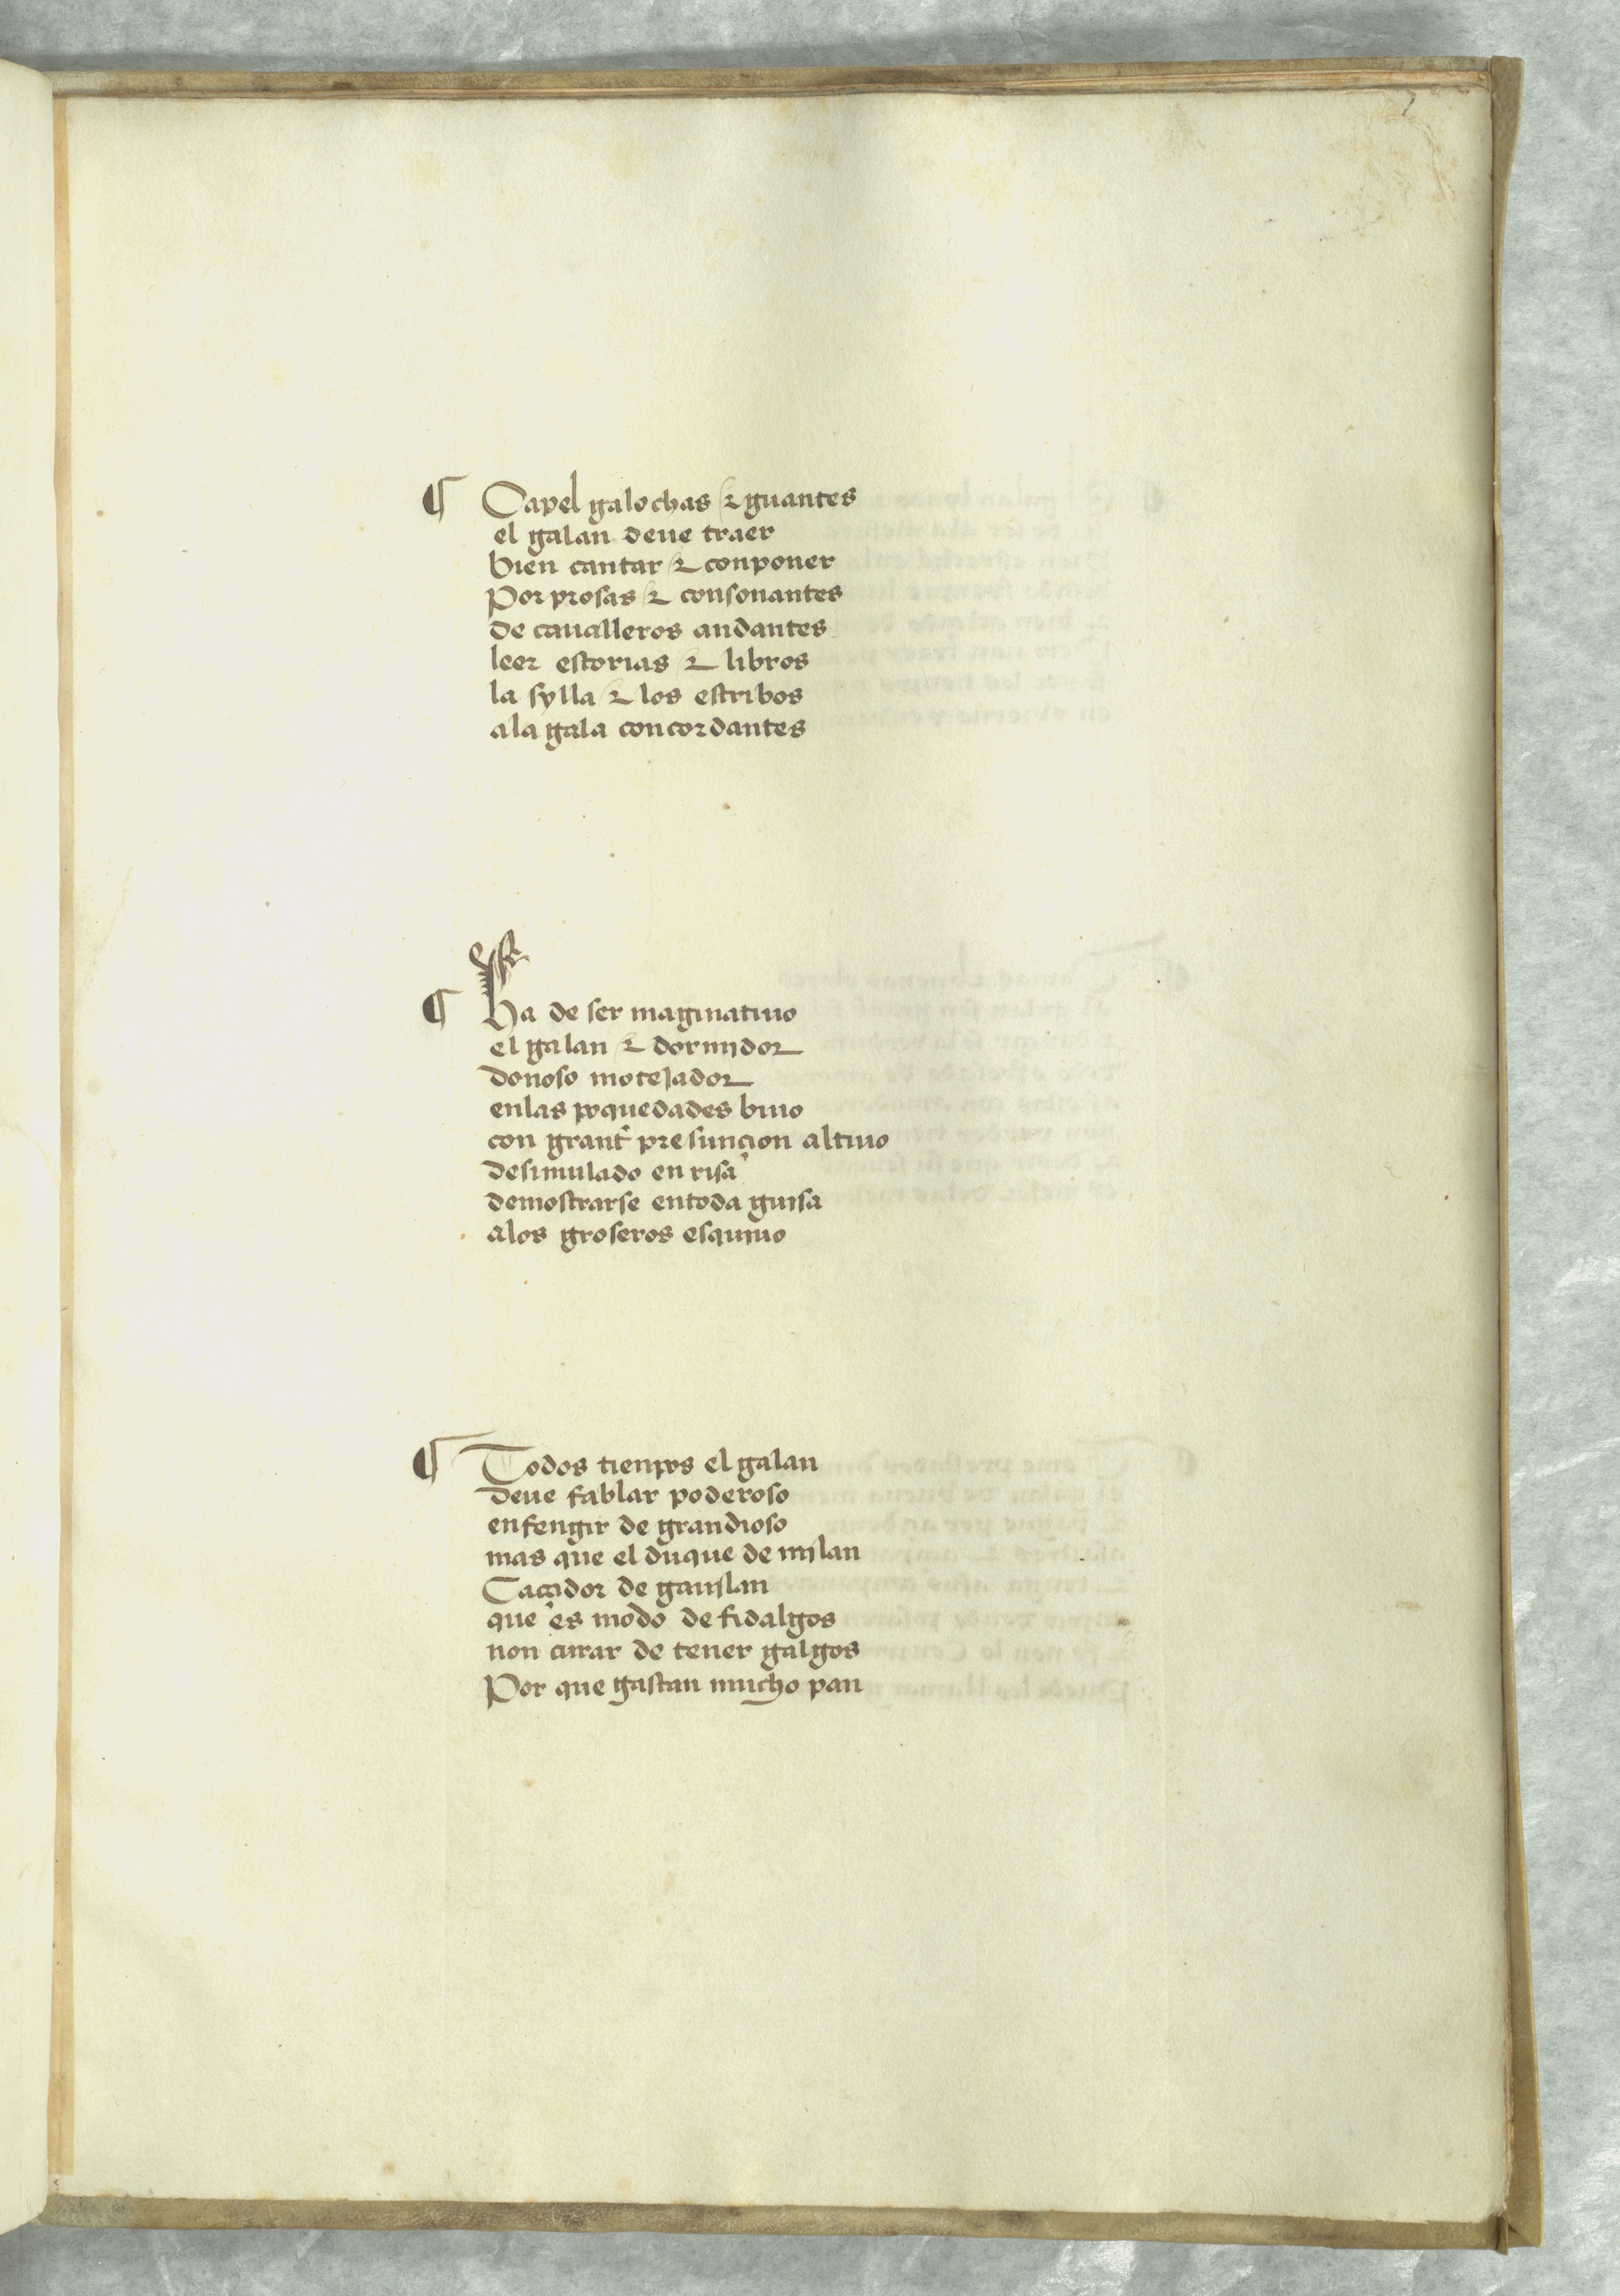 7
¶ Capel galochas & guantes
el galan deue traer
bien cantar & conponer
Por prosas & consonantes
de caualleros andantes
leer estorias & libros
la sylla & los estribos
ala gala concordantes
¶ Ha de ser maginatiuo
el galan & dormjdor
donoso motejador
enlas poquedades biuo
con grant presunçion altiuo
desimulado en risa
demostrarse entoda guisa
alos groseros esqujuo
¶ Todos tienpos el galan
deue fablar poderoso
enfengir de grandioso
mas que el duque de mjlan
Caçador de gaujlan
que es modo de fidalgos
non curar de tener galgos
Por que gastan mucho pan